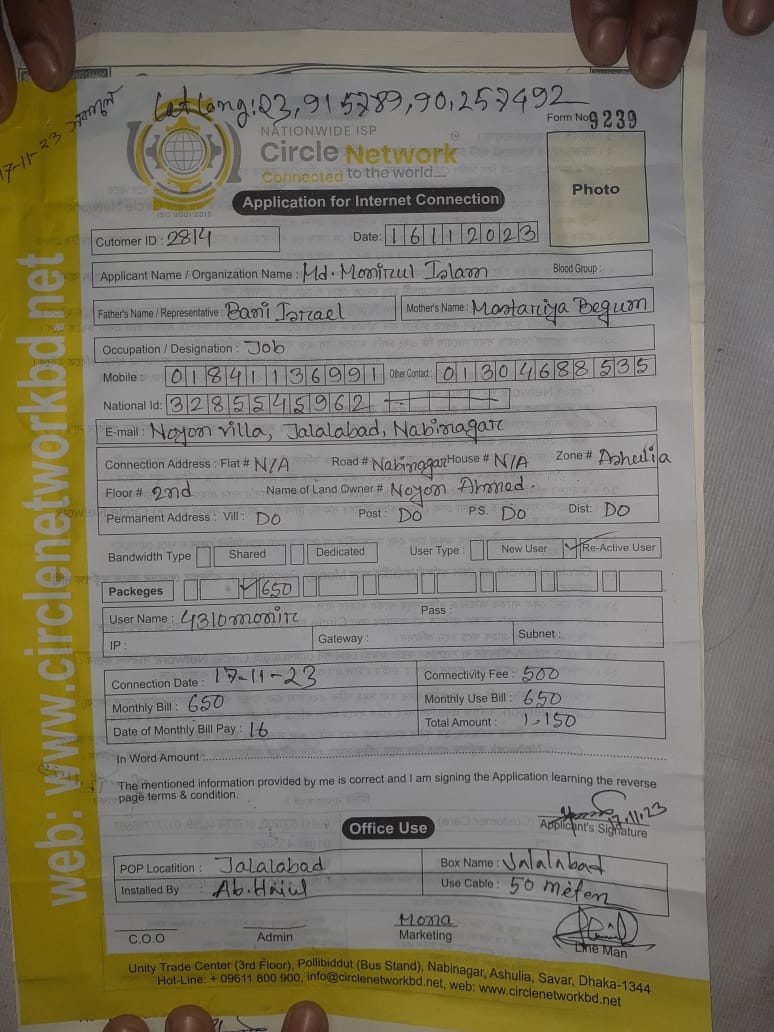 Lat Long:23,915789,90,257492
17-11-23
NATIONWIDE ISP
Circle Network
Connected to the world.....
ISO 9001:2015
Form No 9239
Photo
Application for Internet Connection
Cutomer ID : 2814 Date: 16112023
Applicant Name / Organization Name : Md. Monirul Islam Blood Group :
Father's Name / Representative : Bani Israel Mother's Name : Mostariya Begum
Occupation / Designation : Job
Mobile : 01841136991 Other Contact : 01304688535
National Id: 3285545962
E-mail : Noyon villa, Jalalabad, Nabinagar
Connection Address : Flat # N/A Road # Nabinagar House # N/A Zone # Ashulia
Floor # 2nd Name of Land Owner # Noyon Ahmed.
Permanent Address : Vill : Do Post : Do P.S. Do Dist: Do
Bandwidth Type Shared Dedicated User Type : New User ✓ Re-Active User
Packeges ✓ 650
User Name : 4310monir Pass :
IP : Gateway : Subnet :
Connection Date : 17-11-23 Connectivity Fee : 500
Monthly Bill : 650 Monthly Use Bill : 650
Date of Monthly Bill Pay : 16 Total Amount : 1,150
In Word Amount :
The mentioned information provided by me is correct and I am signing the Application learning the reverse
page terms & condition.
17.11.23
Applicant's Signature
Office Use
POP Locatition : Jalalabad Box Name : Jalalabad
Installed By : Ab. Use Cable : 50 meten
Mona
C.O.O Admin Marketing Line Man
Unity Trade Center (3rd Floor), Pollibiddut (Bus Stand), Nabinagar, Ashulia, Savar, Dhaka-1344
Hot-Line: + 09611 800 900, info@circlenetworkbd.net, web: www.circlenetworkbd.net
web: www.circlenetworkbd.net